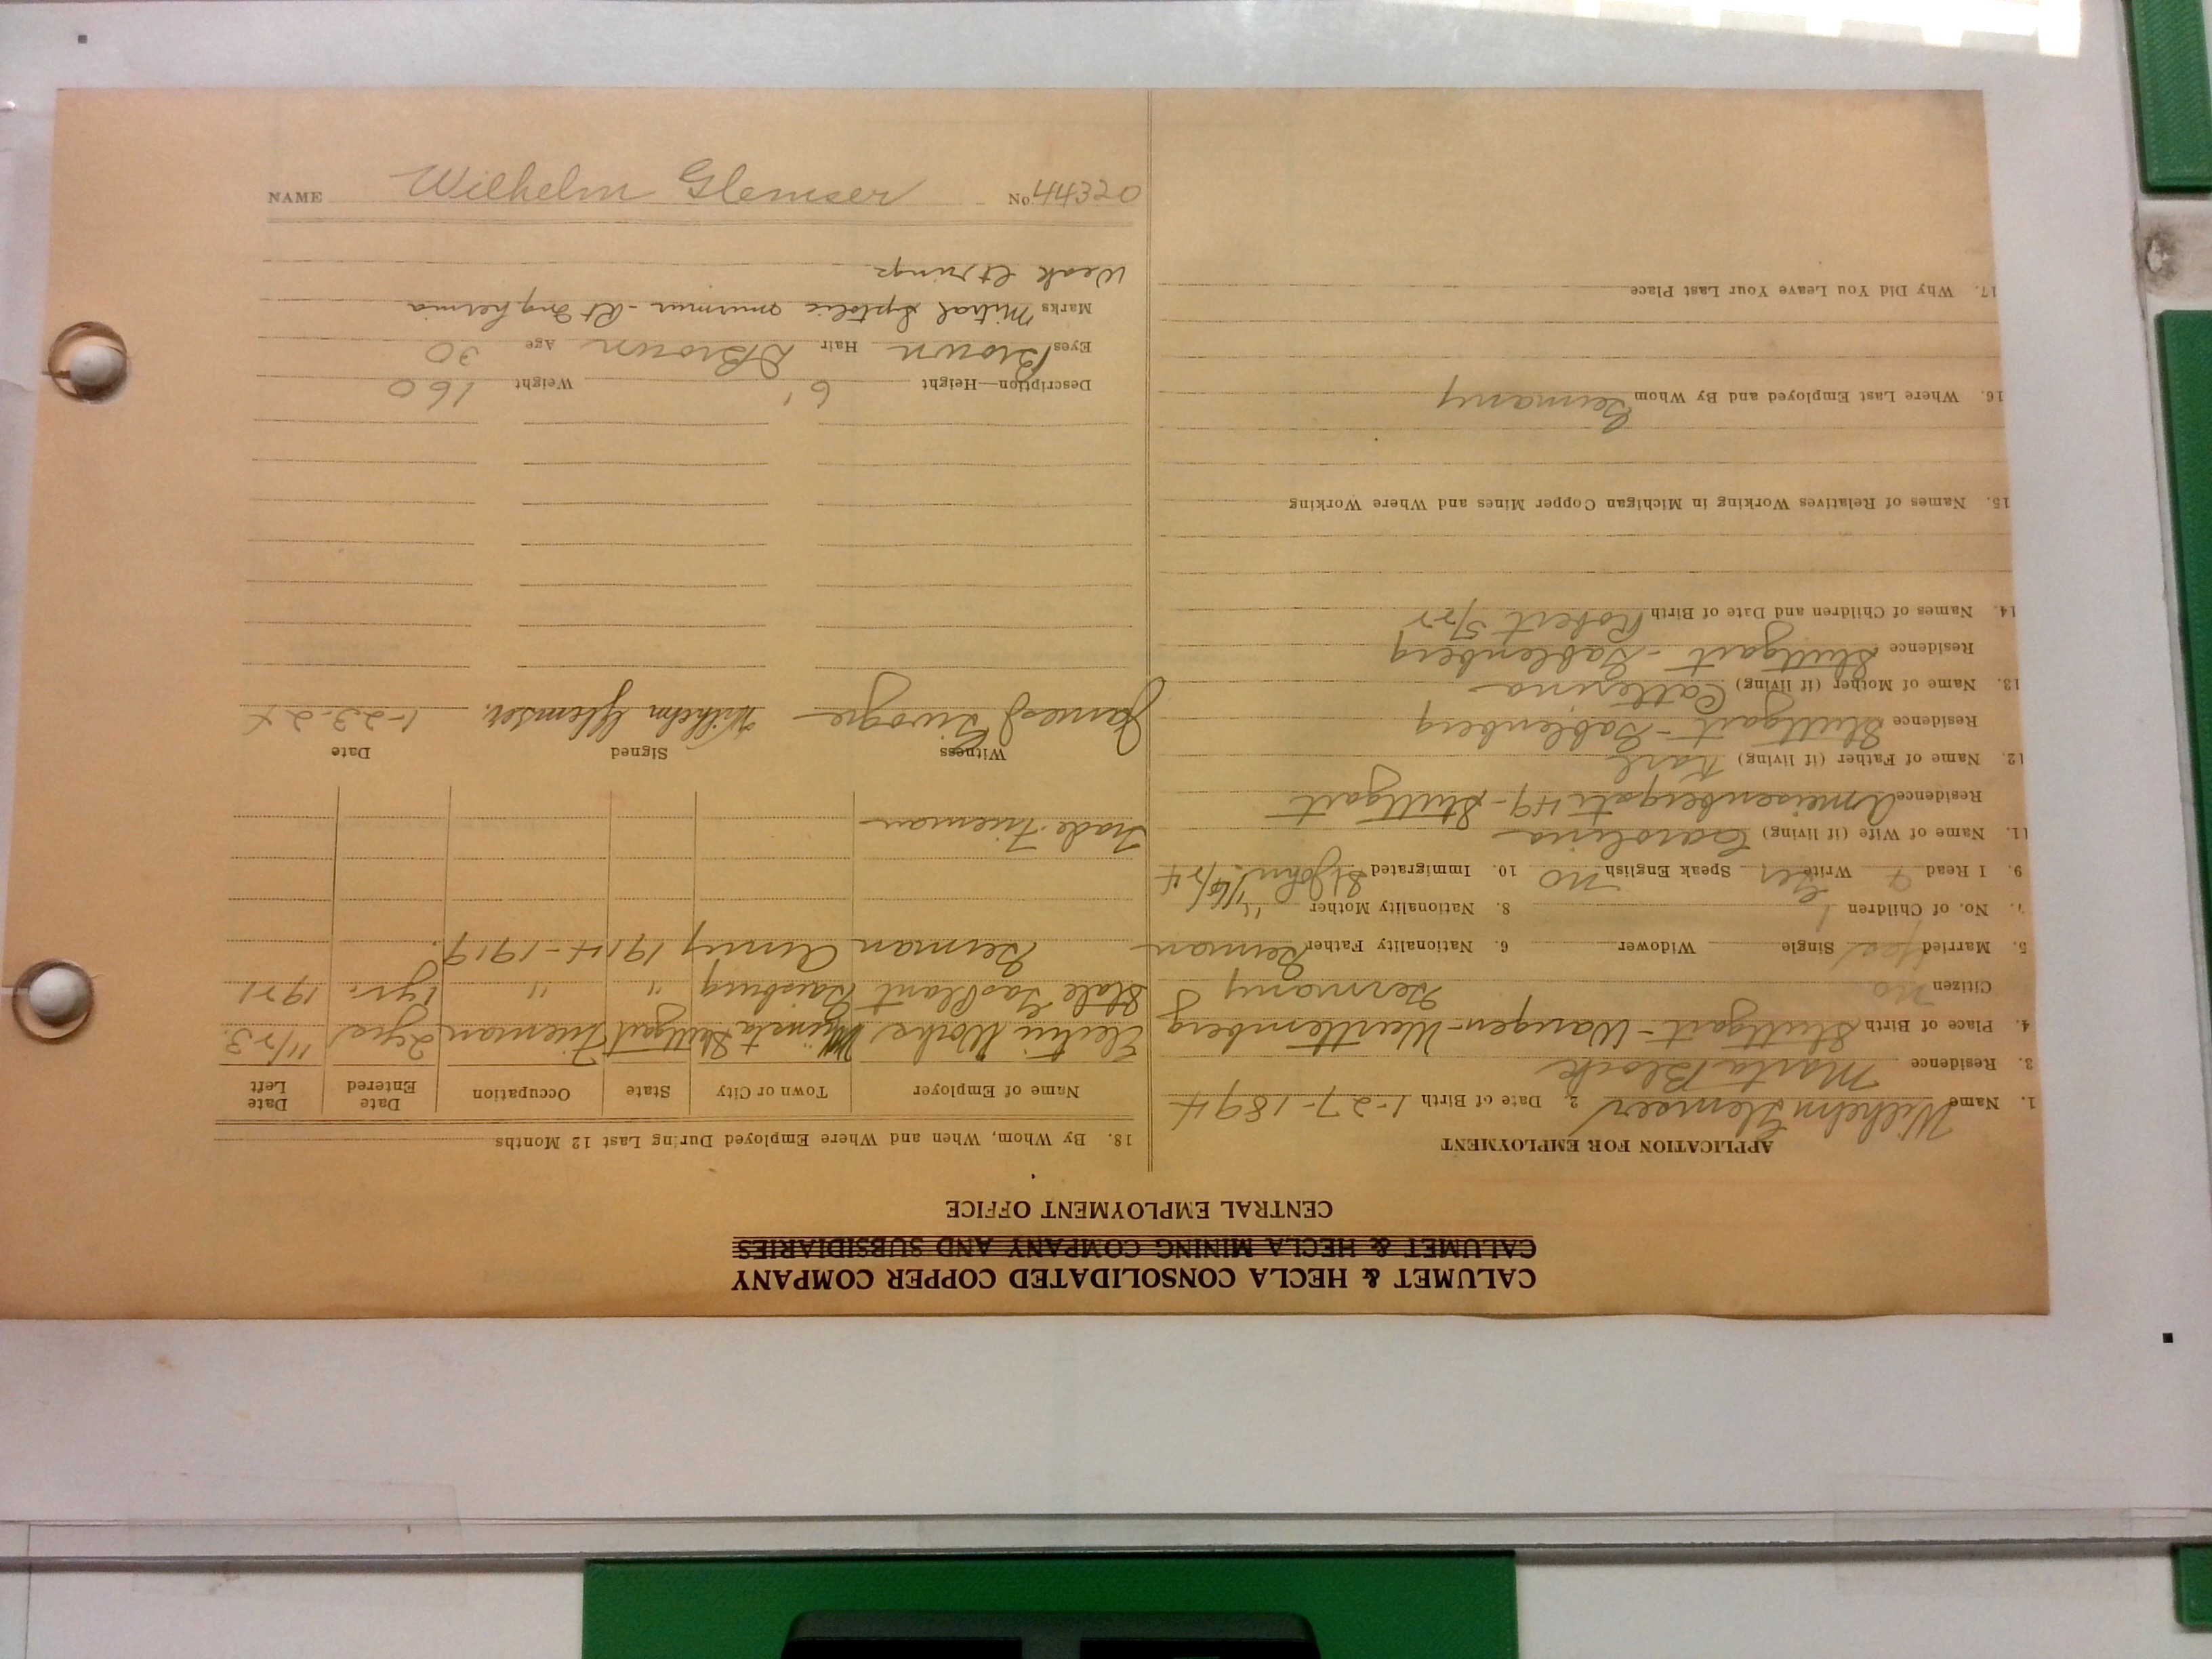 CALUMET & HECLA CONSOLIDATED COPPER COMPANY
CALUMET & HECLA MINING COMPANY AND SUBSIDIARIES
CENTRAL EMPLOYMENT OFFICE
APPLICATION FOR EMPLOYMENT
1. Name Wilhelm Glemser 2. Date of Birth 1-27-1894
3. Residence Marta Block
4. Place of Birth Stuttgart - Wangen - Wurttemberg
Citizen no Germany
5. Married Yes Single Widower 6. Nationality Father German
7. No. of Children 1 8. Nationality Mother "
9. I Read & Write Ger Speak English no 10. Immigrated St John 1/16/24
11. Name of Wife (if living) Carolina
Residence Ameisenbergstr 49 - Stuttgart
12. Name of Father (if living) Karl
Residence Stuttgart - Gablenberg
13. Name of Mother (if living)
Residence Stuttgart - Gablenberg
14. Names of Children and Date of Birth Robert 5/22
15. Names of Relatives Working in Michigan Copper Mines and Where Working
16. Where Last Employed and By Whom Germany
17. Why Did You Leave Your Last Place
18. By Whom, When and Where Employed During Last 12 Months
Name of Employer Town or City State Occupation Date Entered Date Left
Electric Works Stuttgart Fireman 2 yrs 11/23
State Gas Plant " " 1 yr. 1921
German Army 1914-1919.
Trade Fireman
Witness Signed Date
James Wilhelm Glemser. 1-23-24
Description—Height 6' Weight 160
Eyes Brown Hair D Brown Age 30
Marks Mitral Systolic murmur - Rt Ing hernia
Weak Lt rings
NAME Wilhelm Glemser No. 44320